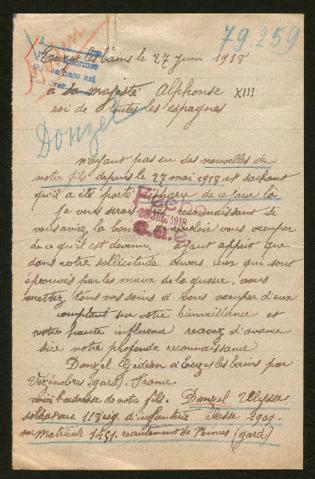 Euzet les bains le 27 juin 1918
79.259
à sa majesté Alphonse XIII
roi de toutes les espagnes
Donzel
n'ayant pas eu des nouvelles de
notre fils depuis le 27 mai 1918 et sachant
qu'il a été porté disparu de ce jour là
je vous serais reconnaissant si
vous aviez la bonté de vouloir vous occuper
de ce qu'il est devenu. ayant appris que
dans votre sollicitude envers ceux qui sont
éprouvés par les maux de la guerre. vous
mettez tous vos soins à vous occuper d'eux
comptant sur votre bienveillance et
votre haute influence recevez d'avance
sire notre profonde reconnaissance
Donzel Gédéon à Euzet les bains par
Vézénobres (gard). France
voici l'adresse de notre fils. Donzel Ulysse
soldat au 118 reg. d'infanterie classe 1909.
n. matricule 1451. recrutement de Nimes (gard)
Fecha
1918